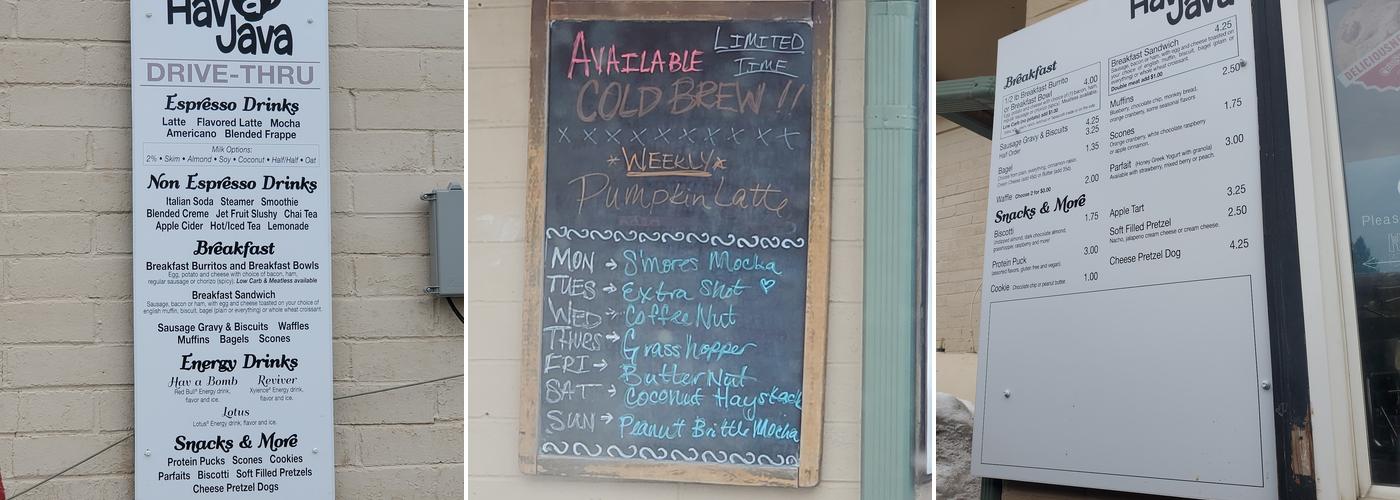 Hav@
Java
DRIVE-THRU
Espresso Drinks
Latte Flavored Latte Mocha
Americano Blended Frappe
Milk Options:
2% • Skim • Almond • Soy • Coconut • Half/Half • Oat
Non Espresso Drinks
Italian Soda Steamer Smoothie
Blended Creme Jet Fruit Slushy Chai Tea
Apple Cider Hot/Iced Tea Lemonade
Breakfast
Breakfast Burritos and Breakfast Bowls
Egg, potato and cheese with choice of bacon, ham,
regular sausage or chorizo (spicy); Low Carb & Meatless available
Breakfast Sandwich
Sausage, bacon or ham, with egg and cheese toasted on your choice of
english muffin, biscuit, bagel (plain or everything) or whole wheat croissant.
Sausage Gravy & Biscuits Waffles
Muffins Bagels Scones
Energy Drinks
Hav a Bomb Reviver
Red Bull® Energy drink, Xyience® Energy drink,
flavor and ice. flavor and ice.
Lotus
Lotus® Energy drink, flavor and ice.
Snacks & More
Protein Pucks Scones Cookies
Parfaits Biscotti Soft Filled Pretzels
Cheese Pretzel Dogs
AVAILABLE
LIMITED
TIME
COLD BREW !!
X X X X X X X X X X
*WEEKLY*
Pumpkin Latte
MON → S'mores Mocha
TUES → Extra Shot ♡
WED → Coffee Nut
THURS → Grasshopper
FRI → Butter Nut
SAT → Coconut Haystack
SUN → Peanut Brittle Mocha
Hav@
Java
Breakfast
1/2 lb Breakfast Burrito 4.00
or Breakfast Bowl
Low Carb (no potato) add $1.00
Sausage Gravy & Biscuits 4.25
Half Order 3.25
Bagel 1.35
Choose from plain, everything, cinnamon-raisin.
Waffle Choose 2 for $3.00 2.00
Snacks & More
Biscotti 1.75
Undipped almond, dark chocolate almond,
grasshopper, raspberry and more!
Protein Puck 3.00
(assorted flavors, gluten free and vegan).
Cookie Chocolate chip or peanut butter. 1.00
Breakfast Sandwich 4.25
Sausage, bacon or ham, with egg and cheese toasted on
your choice of english muffin, biscuit, bagel (plain or
everything) or whole wheat croissant.
Double meat add $1.00
Muffins 2.50
Blueberry, chocolate chip, monkey bread,
orange cranberry, some seasonal flavors
Scones 1.75
Orange cranberry, white chocolate raspberry
or apple cinnamon.
Parfait (Honey Greek Yogurt with granola) 3.00
Available with strawberry, mixed berry or peach.
Apple Tart 3.25
Soft Filled Pretzel 2.50
Nacho, jalapeno cream cheese or cream cheese.
Cheese Pretzel Dog 4.25
DELICIOUS